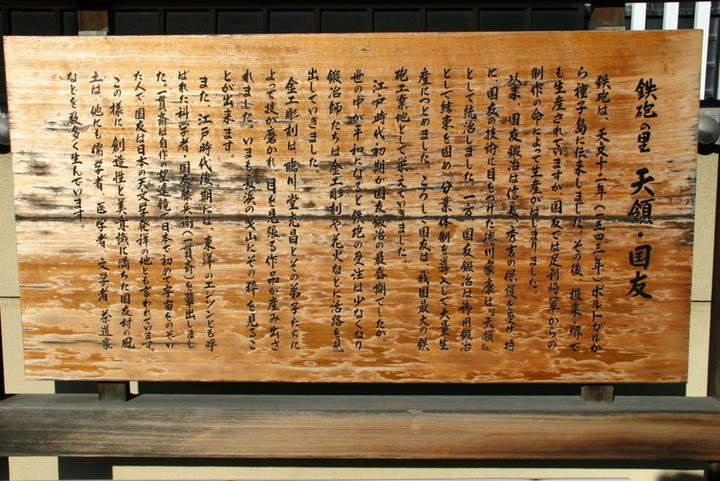 鉄砲の里 天領・国友
鉄砲は、天文十二年(一五四三年)ポルトガルか
ら種子島に伝来しました。その後、根来、堺で
も生産されていますが、国友では足利将軍からの
制作の命によって生産がはじまりました。
以来、国友鍛冶は信長、秀吉の保護を受け、特
に、国友の技術に目をつけた徳川家康は『天領』
として統治しました。一方、国友鍛冶は御用鍛冶
として結束を固め、分業体制を導入して大量生
産につとめました。こうして国友は、我国最大の鉄
砲工業地として栄えていきました。
江戸時代初期が国友鍛冶の最盛期でしたが、
世の中が平和になると鉄砲の受注は少なくなり
鍛冶師たちは金工彫刻や花火などに活路を見
出していきました。
金工彫刻は、臨川堂充昌とその弟子たちに
よって技が磨かれ、目を見張る作品が産み出さ
れました。いまも長浜の曳山にその粋を見るこ
とが出来ます。
また、江戸時代後期には、東洋のエジソンとも呼
ばれた科学者・国友藤兵衛(一貫斎)を輩出しまし
た。一貫斎は自作の望遠鏡で日本で初めて宇宙をのぞい
た人で、国友は日本の天文学発祥の地ともいわれています。
この様に創造性と美意識に満ちた国友村の風
土は、他にも儒学者、医学者、文学者、茶道家
などを数多く生んでいます。